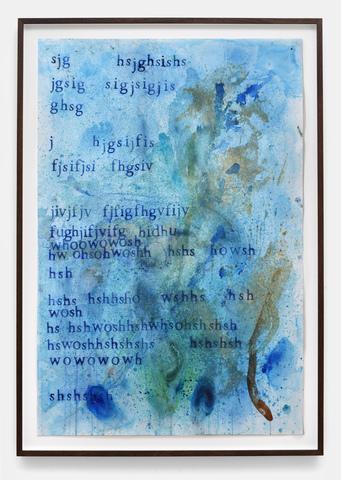 sjg hsjghsishs
jgsig sigjsigjis
ghsg
j hjgsijfis
fjsifjsi fhgsiv
jivjfjv fjfigfhgvfijv
fughjifjvifg hidhu
whoowowosh
hw ohsohwoshh hshs howsh
hsh
hshs hshhshs wshhs hsh
wosh
hs hshwoshhshwhsohshshsh
hswoshhshshshs hshshsh
wowowowh
shshshsh